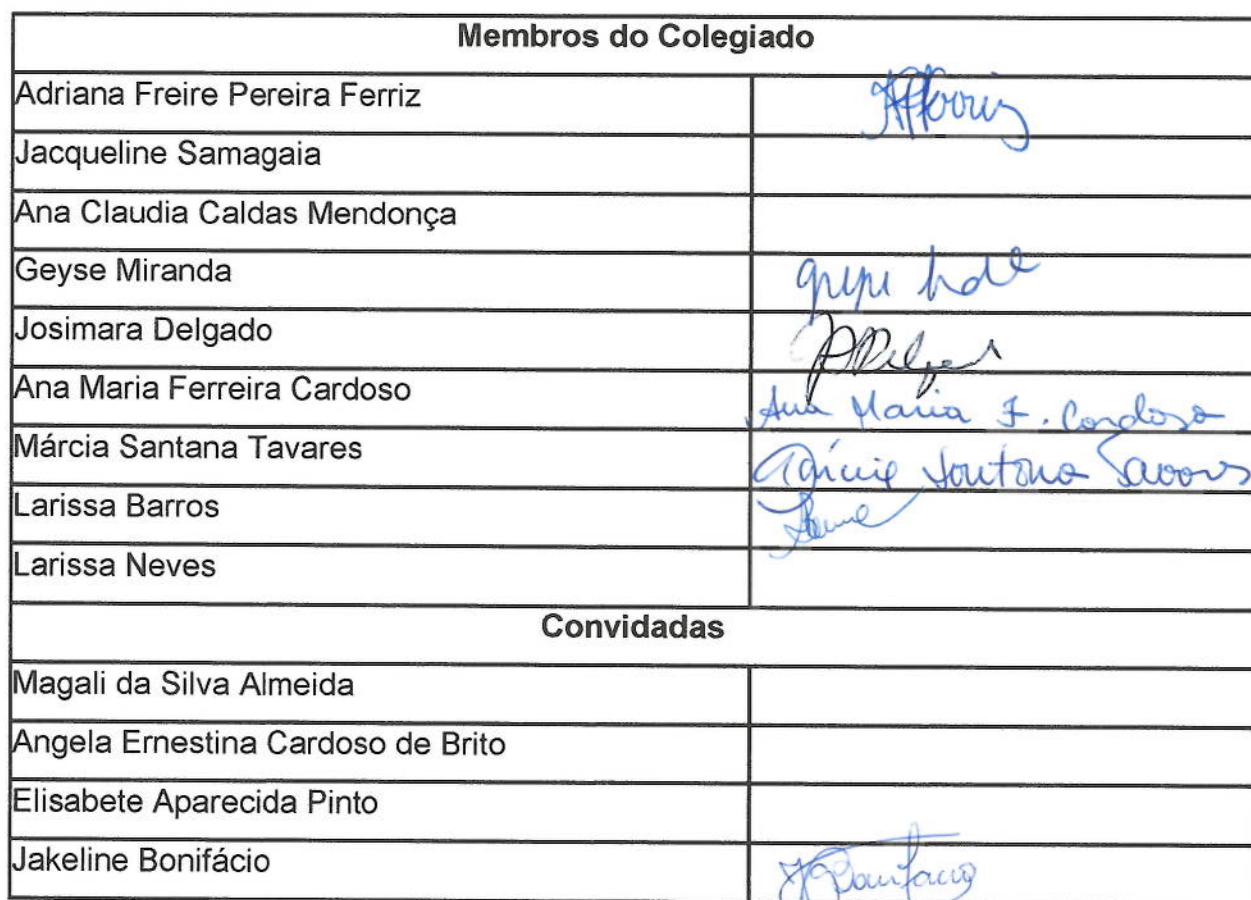 Membros do Colegiado
Adriana Freire Pereira Ferriz
Jacqueline Samagaia
Ana Claudia Caldas Mendonça
Geyse Miranda
Josimara Delgado
Ana Maria Ferreira Cardoso Ana Maria F. Cardoso
Márcia Santana Tavares
Larissa Barros
Larissa Neves
Convidadas
Magali da Silva Almeida
Angela Ernestina Cardoso de Brito
Elisabete Aparecida Pinto
Jakeline Bonifácio